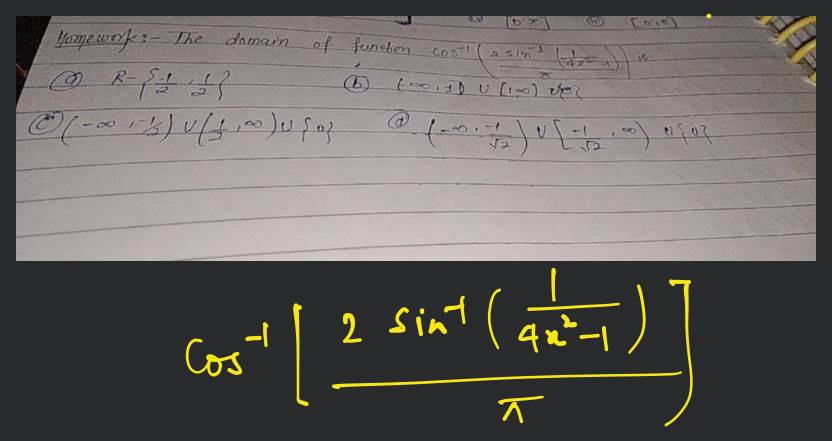 [0,π] (b) [0,π]
Homework:- The domain of function cos⁻¹(2 sin⁻¹(1/(4x²-1))/π) is
(a) R-{-1/2, 1/2}
(b) (-∞,-1] ∪ [1,∞) ∪{0}
(c) (-∞,-1/2) ∪ (1/2,∞) ∪ {0}
(d) (-∞,-1/√2) ∪ [-1/√2,∞) ∪{0}
cos⁻¹[2 sin⁻¹(1/(4x²-1))/π]